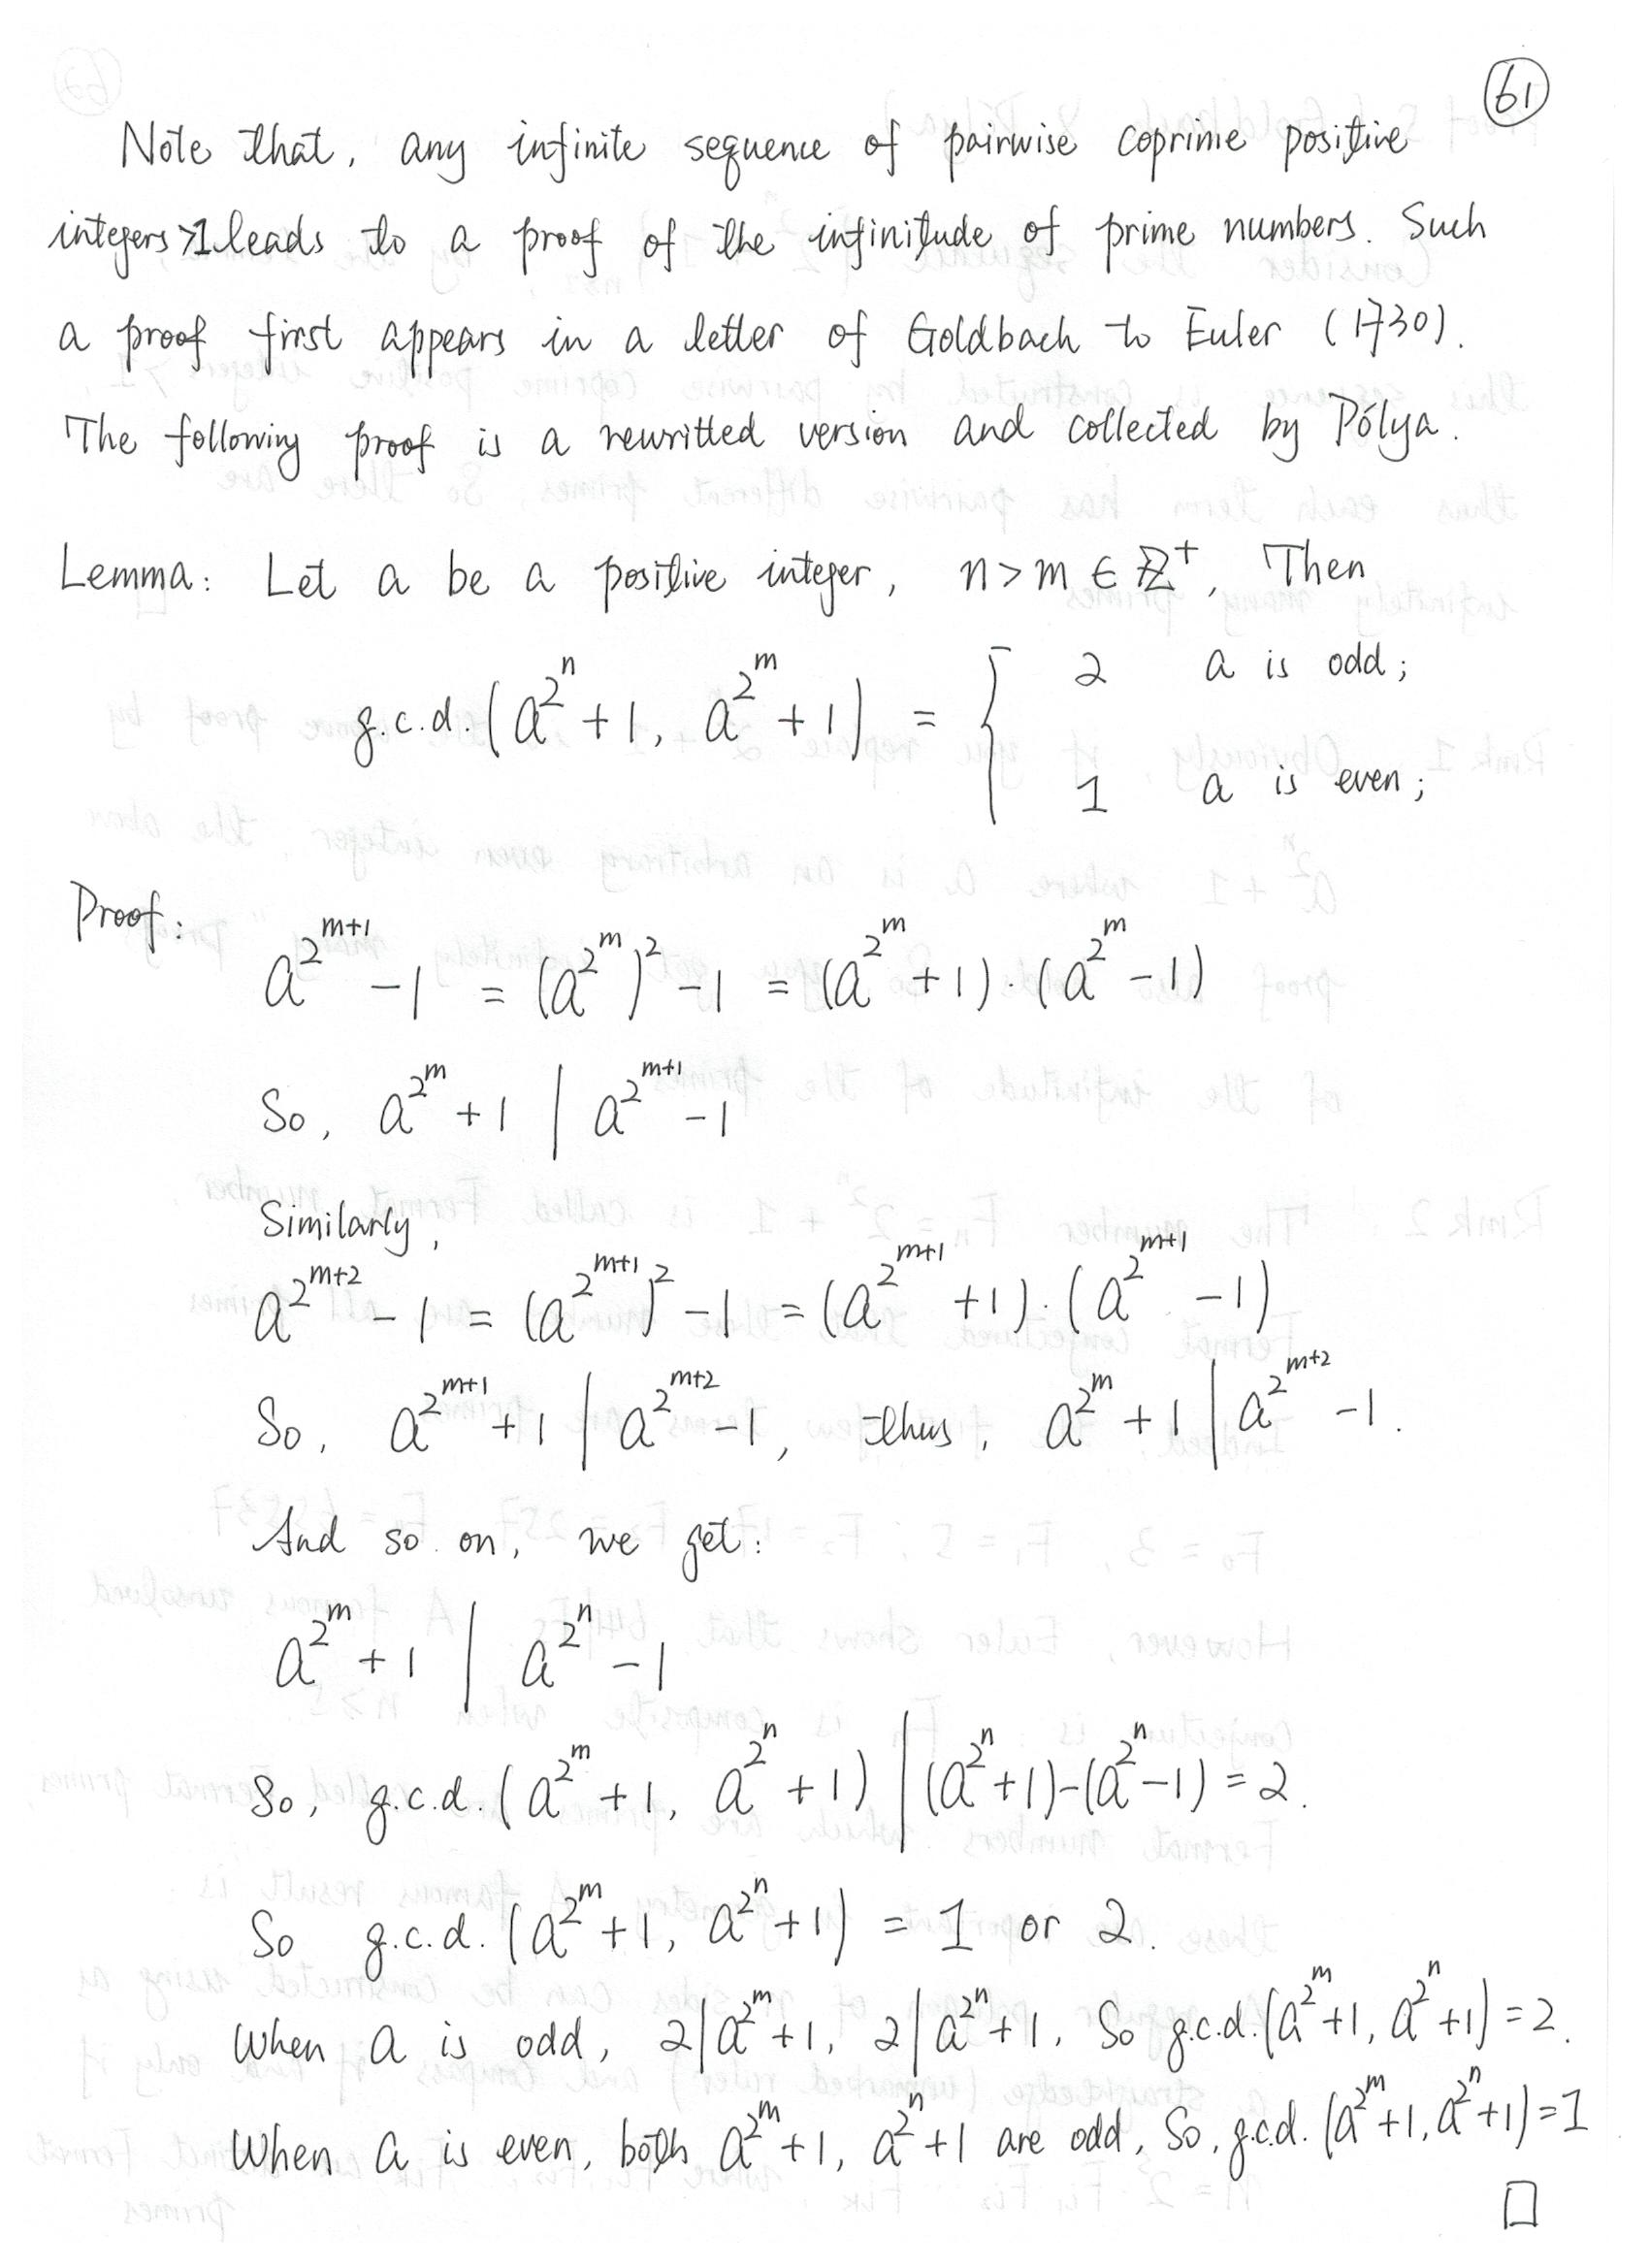 61
Note that, any infinite sequence of pairwise coprime positive
integers >1 leads to a proof of the infinitude of prime numbers. Such
a proof first appears in a letter of Goldbach to Euler (1730).
The following proof is a rewritted version and collected by Pólya.
Lemma: Let a be a positive integer, n > m ∈ ℤ⁺, Then
g.c.d. (a^{2^n} + 1, a^{2^m} + 1) = { 2 a is odd;
1 a is even;
Proof:
a^{2^{m+1}} - 1 = (a^{2^m})^2 - 1 = (a^{2^m} + 1) · (a^{2^m} - 1)
So, a^{2^m} + 1 | a^{2^{m+1}} - 1
Similarly,
a^{2^{m+2}} - 1 = (a^{2^{m+1}})^2 - 1 = (a^{2^{m+1}} + 1) · (a^{2^{m+1}} - 1)
So, a^{2^{m+1}} + 1 | a^{2^{m+2}} - 1, thus, a^{2^m} + 1 | a^{2^{m+2}} - 1.
And so on, we get:
a^{2^m} + 1 | a^{2^n} - 1
So, g.c.d. (a^{2^m} + 1, a^{2^n} + 1) | (a^{2^n} + 1) - (a^{2^n} - 1) = 2.
So g.c.d. (a^{2^m} + 1, a^{2^n} + 1) = 1 or 2.
When a is odd, 2 | a^{2^m} + 1, 2 | a^{2^n} + 1, So g.c.d. (a^{2^m} + 1, a^{2^n} + 1) = 2.
When a is even, both a^{2^m} + 1, a^{2^n} + 1 are odd, So, g.c.d. (a^{2^m} + 1, a^{2^n} + 1) = 1
□